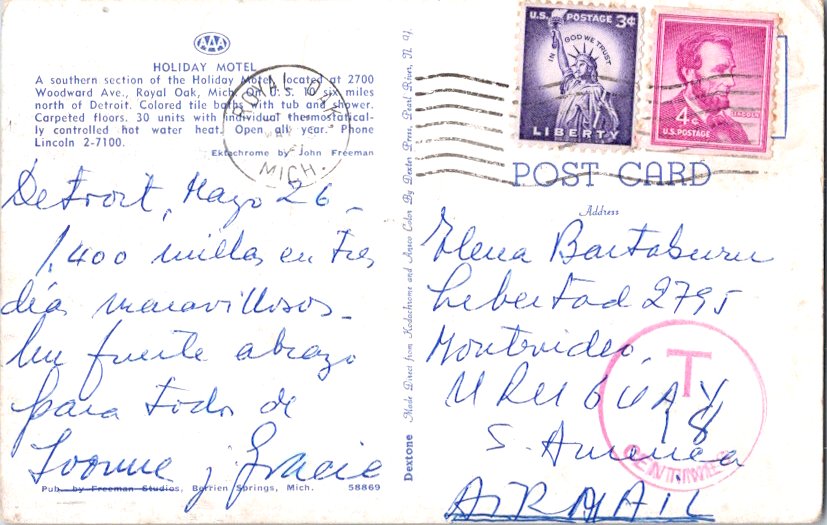 AAA
HOLIDAY MOTEL
A southern section of the Holiday Motel located at 2700
Woodward Ave., Royal Oak, Mich. On U.S. 10 six miles
north of Detroit. Colored tile baths with tub and shower.
Carpeted floors. 30 units with individual thermostatical-
ly controlled hot water heat. Open all year. Phone
Lincoln 2-7100.
Ektachrome by John Freeman
Detroit, Mayo 26 -
1.400 millas en tres
días maravillosos -
Un fuerte abrazo
para todos de
Ivonne y Gracie
Pub. by Freeman Studios, Berrien Springs, Mich. 58869
Dextone Made Direct from Kodachrome and Ansco Color By Dexter Press, Pearl River, N. Y.
MICH.
U.S. POSTAGE 3¢
IN GOD WE TRUST
LIBERTY
4¢
LINCOLN
U.S. POSTAGE
POST CARD
Address
Elena Bartaburu
Libertad 2795
Montevideo,
URUGUAY
S. America
AIRMAIL
T
18
CENTIMES